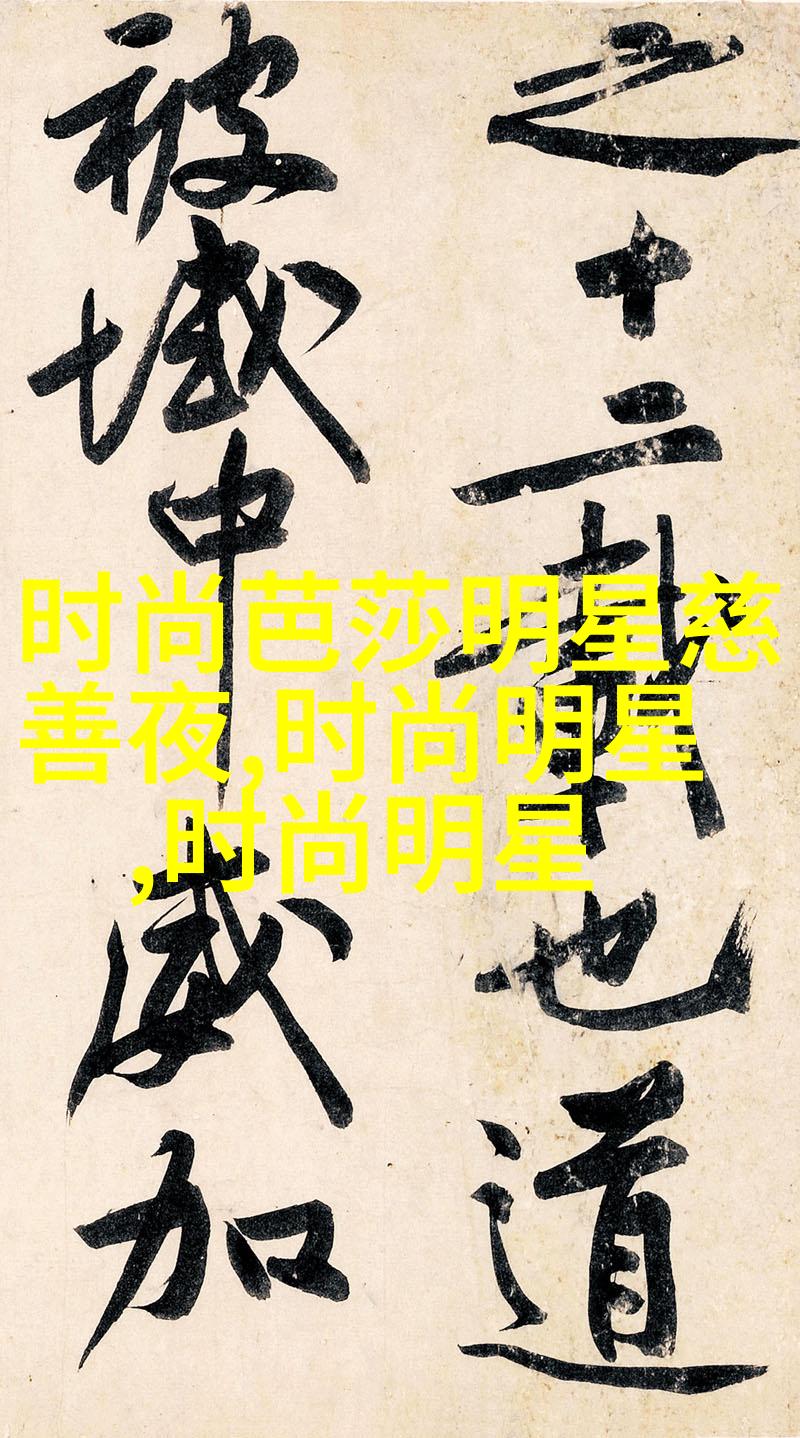 之十二载也道
被域中威加
时尚芭莎明星慈
善夜,时尚明星
,时尚明星